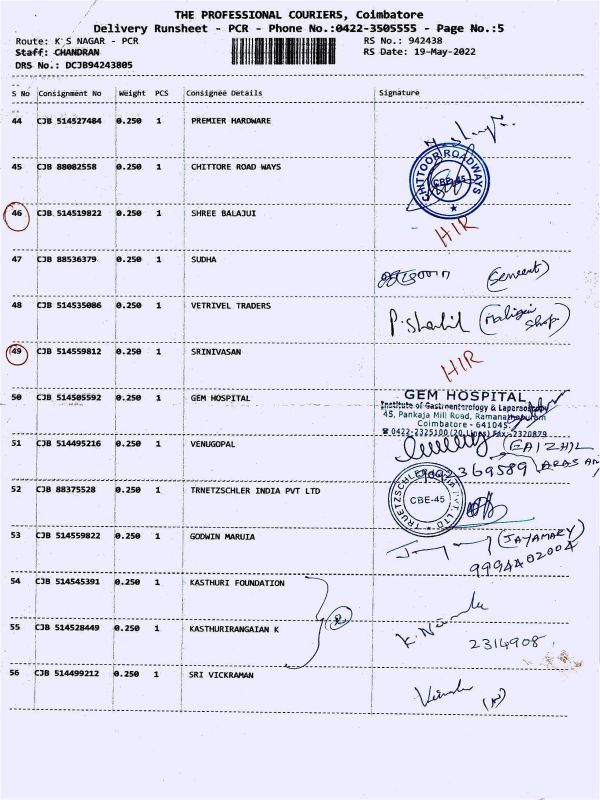 THE PROFESSIONAL COURIERS, Coimbatore
Delivery Runsheet - PCR - Phone No.:0422-3505555 - Page No.:5
Route: K S NAGAR - PCR
RS No.: 942438
Staff: CHANDRAN
RS Date: 19-May-2022
DRS No.: DCJB94243805
S No Consignment No Weight PCS Consignee Details Signature
44 CJB 514527484 0.250 1 PREMIER HARDWARE
45 CJB 88082558 0.250 1 CHITTORE ROAD WAYS
CHITTOOR ROADWAYS
CBE-45
46 CJB 514519822 0.250 1 SHREE BALAJUI
HIR
47 CJB 88536379 0.250 1 SUDHA
48 CJB 514535086 0.250 1 VETRIVEL TRADERS
Shop)
49 CJB 514559812 0.250 1 SRINIVASAN
HIR
50 CJB 514505592 0.250 1 GEM HOSPITAL
GEM HOSPITAL
Institute of Gastroenterology & Laparoscopy
45, Pankaja Mill Road, Ramanathapuram
Coimbatore - 641045.
0422-2325100 (20 Lines) Fax: 2320879
51 CJB 514495216 0.250 1 VENUGOPAL
52 CJB 88375528 0.250 1 TRNETZSCHLER INDIA PVT LTD
TRUETZSCHLER INDIA PVT. LTD
CBE-45
53 CJB 514559822 0.250 1 GODWIN MARUIA
(JAYAMARY)
9994402004
54 CJB 514545391 0.250 1 KASTHURI FOUNDATION
55 CJB 514528449 0.250 1 KASTHURIRANGAIAN K
2314908
56 CJB 514499212 0.250 1 SRI VICKRAMAN